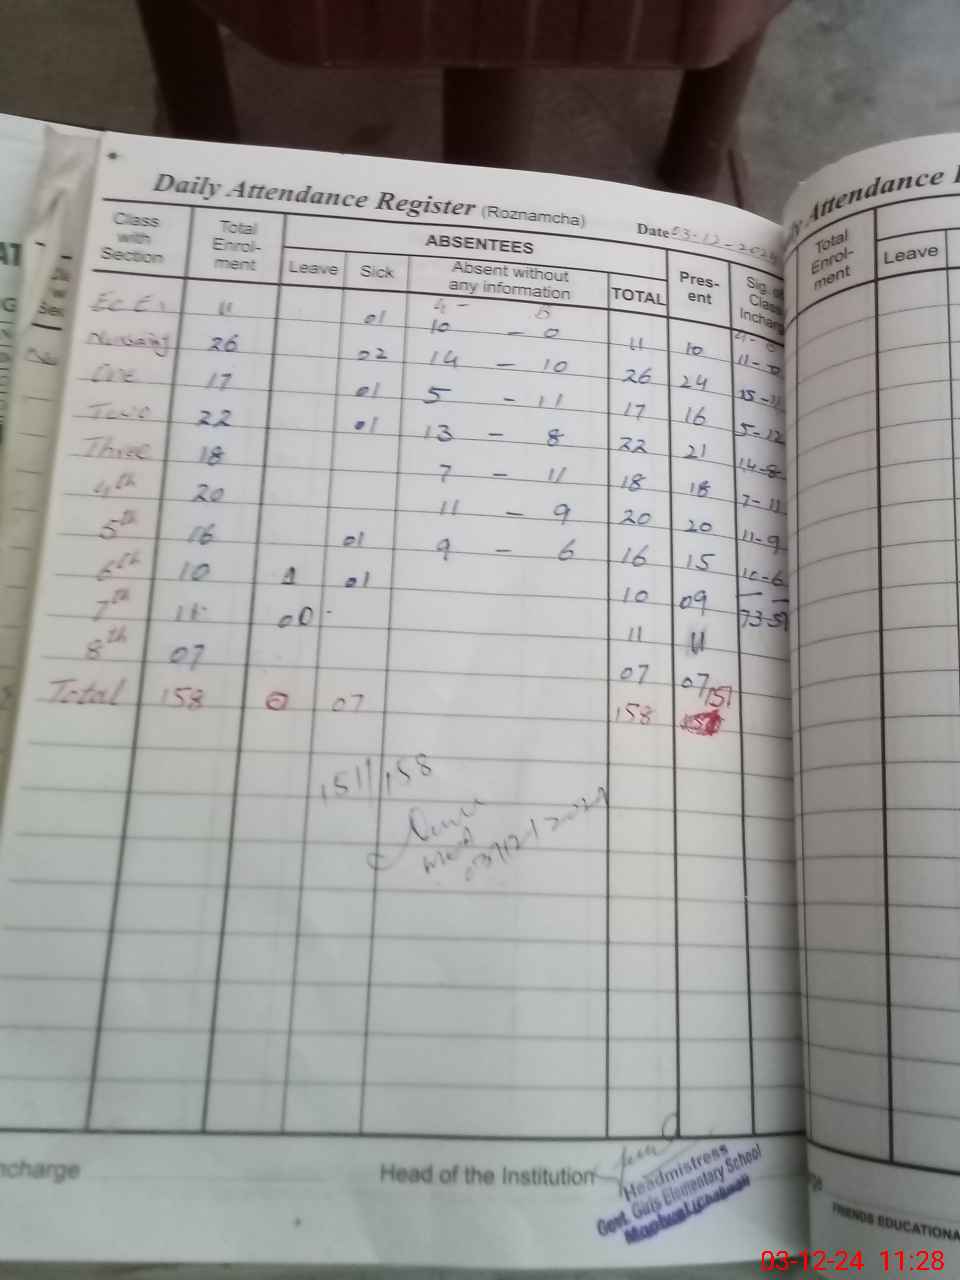 Daily Attendance Register (Roznamcha)
Date 03-12-2024
Class with Section
Total Enrol-ment
ABSENTEES
Leave
Sick
Absent without any information
TOTAL
Pres-ent
Sig. of Class Incharge
11 01 10 - 0 11 10 11-0
Nursaing 26 02 14 - 10 26 24 15-11
One 17 01 5 - 11 17 16 5-12
Two 22 01 13 - 8 22 21 14-8
Three 18 7 - 11 18 18 7-11
4th 20 11 - 9 20 20 11-9
5th 16 01 9 - 6 16 15 10-6
6th 10 01 10 09
7th 11 00 11 11
8th 07 07 07
Total 158 0 07 158 151
151/158
03/12/2024
ncharge
Head of the Institution
Headmistress
Govt. Girls Elementary School
Attendance
Total Enrol-ment
Leave
FRIENDS EDUCATIONA
03-12-24 11:28